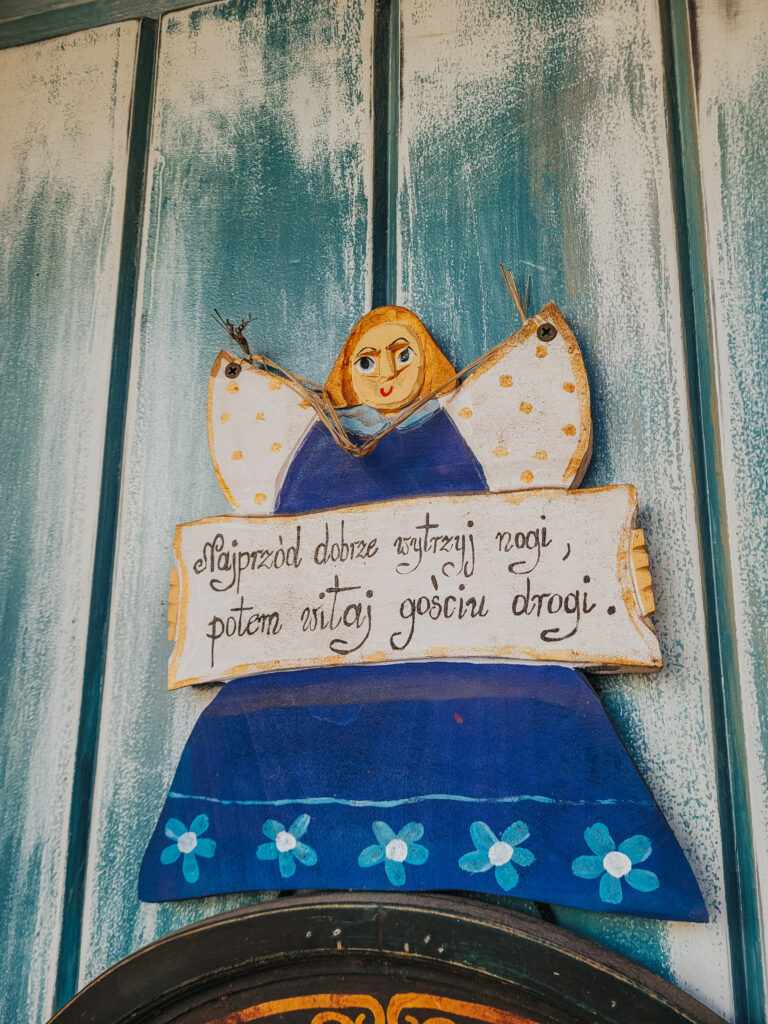 Najprzód dobrze wytrzyj nogi,
potem witaj gościu drogi.